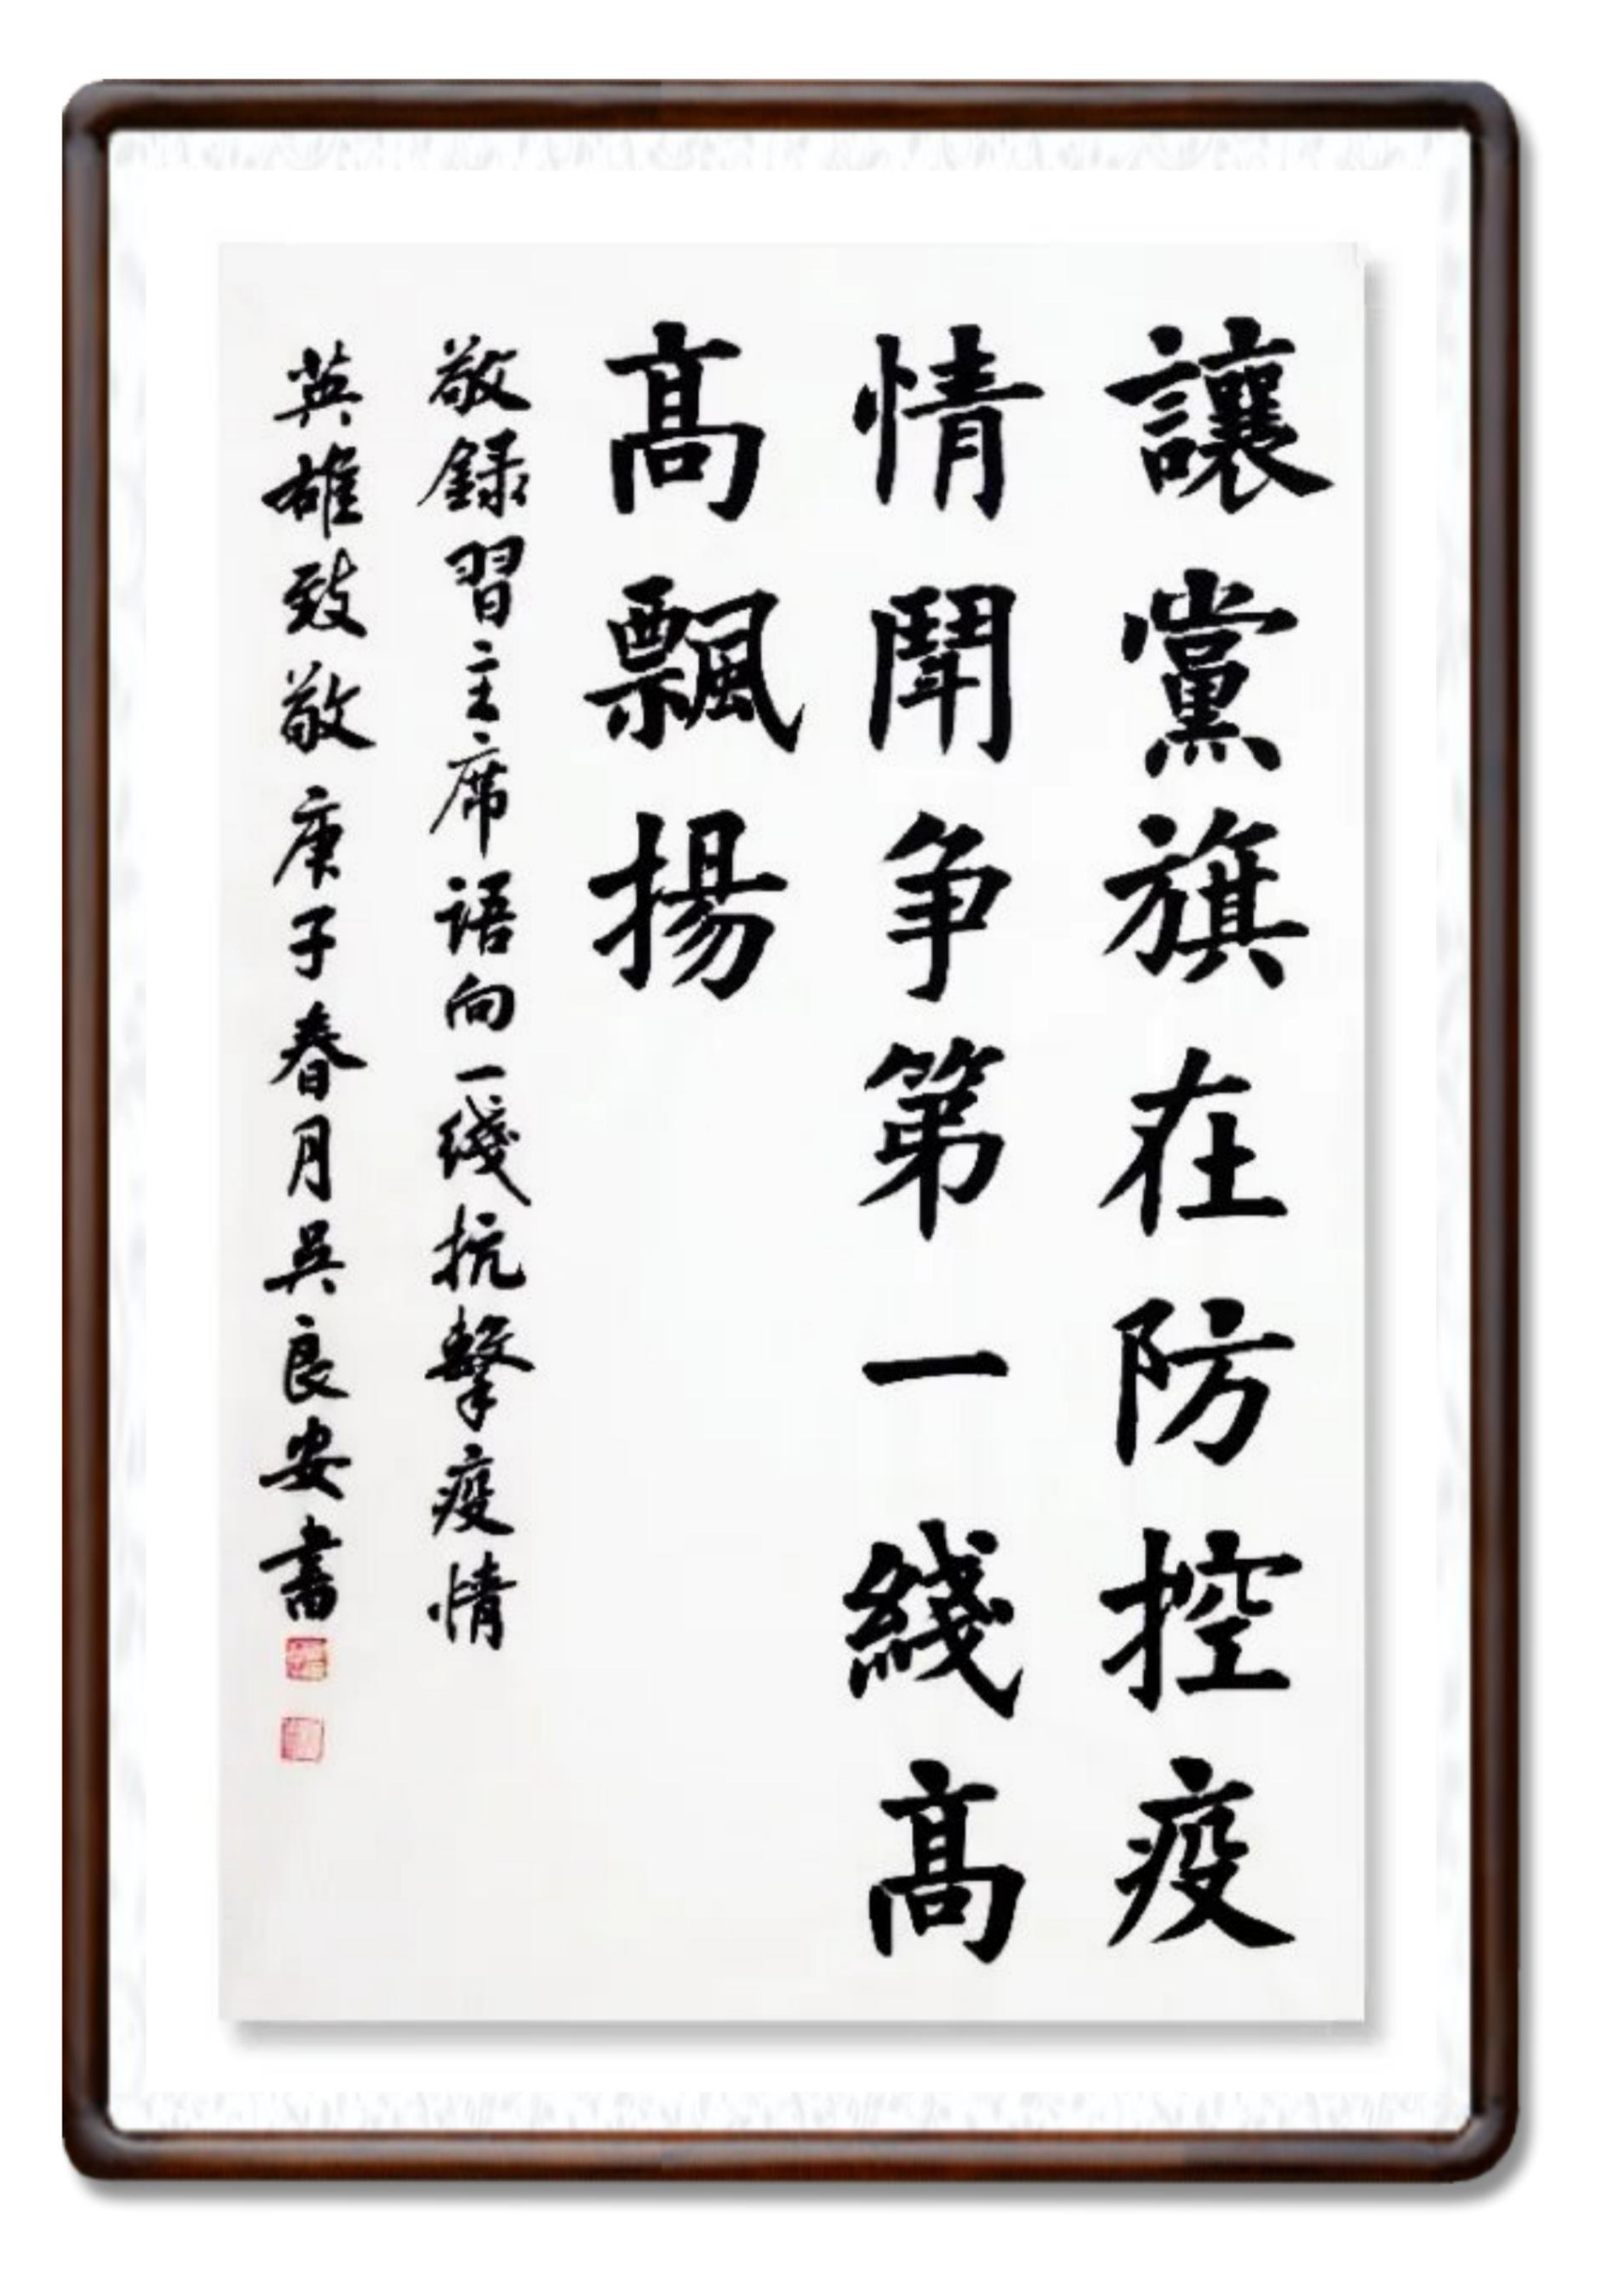 讓黨旗在防控疫
情鬪争第一綫高
高飄揚
敬録習主席語向一綫抗擊疫情
英雄致敬庚子春月吳良安書